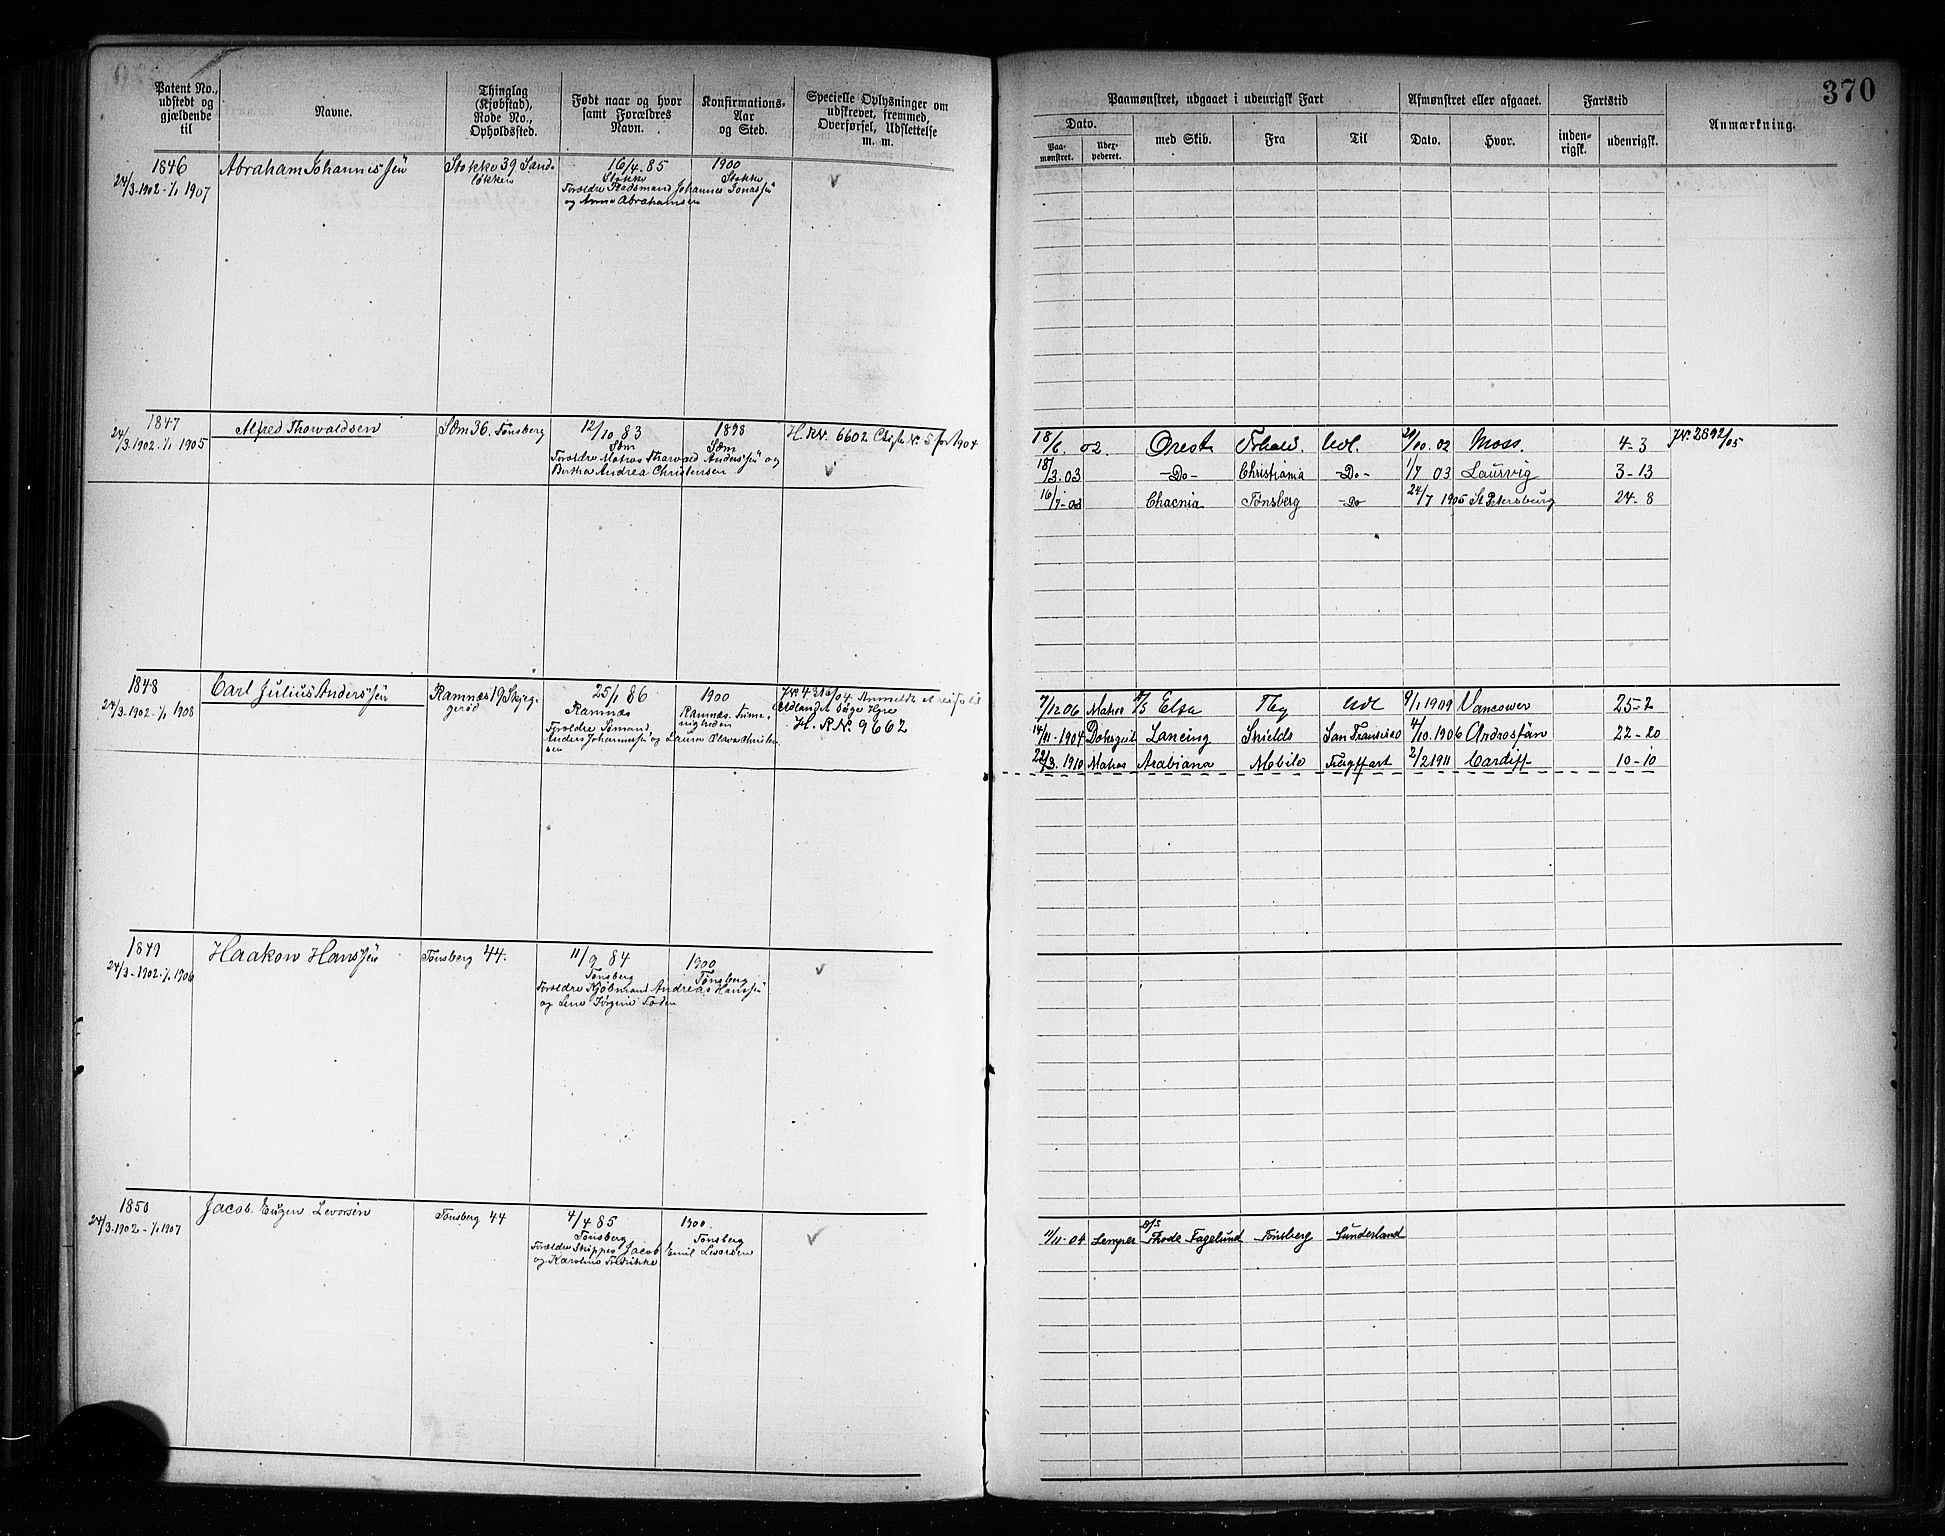 370
Patent No., udstedt og gjældende til
Navne.
Thinglag (Kjøbstad), Rode No., Opholdssted.
Født naar og hvor samt Forældres Navn.
Konfirmations-Aar og Sted.
Specielle Oplysninger om udskrevet, fremmed, Overførsel, Udslettelse m. m.
Paamønstret, udgaaet i udenrigsk Fart
Afmønstret eller afgaaet.
Fartstid
Anmærkning.
Dato.
Paa-mønstret.
Uberpederet.
med Skib.
Fra
Til
Dato.
Hvor.
inden-rigsk.
udenrigsk.
1846
24/3.1902-1/1 1907
Abraham Johannissen
Stokke 39 Sand-
løkken
16/4.85
Stokke
Forældre Pladsmand Johannes Jonassen
og Anne Abrahamsen
1900
Stokke
1847
24/3.1902-1/1 1905
Alfred Thorvaldsen
Sæm 36. Tønsberg
12/10 83
Sæm
Forældre Matros Tharvald Anderssen og
Berthe Andrea Christensen
1898
Sæm
H.RN. 6602
No. 5 for 1904
18/6. 02. Orest Udl. 29/10. 02 Moss. 4-3 JN. 2892/05
18/3.03 -Do- Christiania -Do- 1/7 03 Laurvig 3-13
16/7-03 Chacnia Tønsberg -Do 24/7 1905 St Petersburg 24-8
1848
24/3.1902-1/1 1908
Carl Julius Anderssen
Ramnæs 19 Skjeg-
gerød
25/1 86
Ramnæs
Forældre Sømand
Anders Johannessen og Laura Olava Christen
sen
1900
Ramnæs
H. R.No. 9662
7/12 06 Matros S/S Elsa Tbg Udl 9/1 1909 Vancower 25-2
14/11-1904 Lancing Shields San Francisco 4/10.1906 Androssan 22-20
22/3.1910 Matros Arabiana Mobile Fragtfart 2/2 1911 Cardiff 10-10
1849
24/3-1902-1/1.1906
Haakon Hanssen
Tønsberg 44.
11/9 84
Tønsberg
Forældre Kjøbmand Andreas Hanssen
og Lene Jørgine Foden
1900
Tønsberg
1850
24/3.1902-1/1 1907
Jacob Eugen Levorsen
Tønsberg 44
4/4 85
Tønsberg
Forældre Skipper Jacob Emil Levorsen
og Karoline Fredrikke
1900.
Tønsberg
1/11-04 Lemper D/S Thode Fagelund Tønsberg Sunderland